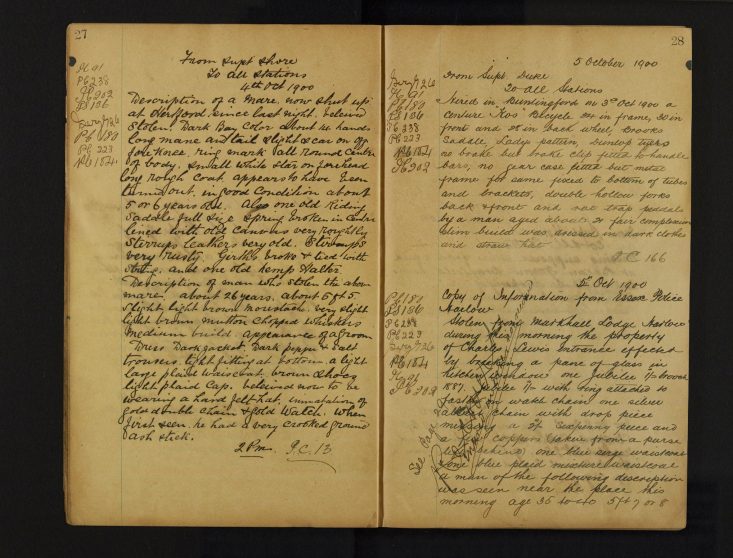 27
From Supt Shore
To All Stations
4th Oct 1900
Description of a Mare, now shut up
at Hertford since last night. believed
Stolen. Dark Bay Color about 14 hands
long mane and tail slight scar on off
fore knee. ring mark all round centre
of body. Small white star on forehead
long rough coat, appears to have been
turned out, in good Condition about
5 or 6 years old. Also one old Riding
Saddle full size Spring broken in centre
lined with old Canvas very roughly
Stirrups Leathers very old. Stirrups
very rusty. Girths broke & tied with
string. and one old hemp Halter
Description of man who stolen the above
mare. about 26 years. about 5 ft 5
slight light brown moustache. very slight
light brown mutton Chopped whiskers
Medium build appearance of a Groom
Dress Dark jacket, Dark pepper & salt
trousers tight fitting at bottom. a light
large plaid waiscoat brown shoes
light plaid Cap. believed now to be
wearing a hard felt hat. immatation of
gold double chain & gold Watch. When
first seen he had a very crooked ground
ash stick.
2 Pm. P.C. 13
28
5 October 1900
From Supt. Duke
To all Stations
Hired in Buntingford on 3rd Oct 1900 a
Bicycle 24 in frame, 30 in
front and 28 in back wheel, Brooks
Saddle, Lady's pattern, Dunlop tyres
no brake but brake clip fitted to handle
bars, no gear case fitted but metal
frame for same fixed to bottom of tubes
and bracketts, double hollow forks
back & front and rat trap peddals
by a man aged about 21 fair complexion
slim build was dressed in dark clothes
and straw hat
P.C. 166
5th Oct 1900
Copy of Information from Essex Police
Harlow
Stolen from Markhall Lodge Harlow
during this morning the property
of Charles Lewis Entrance effected
by breaking a pane of glass in
kitchen window one Jubilee
1887. with ring attached to
fasten on watch chain one silver
albert chain with drop piece
missing a 3d Sixpenny piece and
a few coppers taken from a purse
one blue serge waistcoat
one blue plaid mixture waistcoat
a man of the following description
was seen near the place this
morning age 35 to 40 5 ft 7 or 8